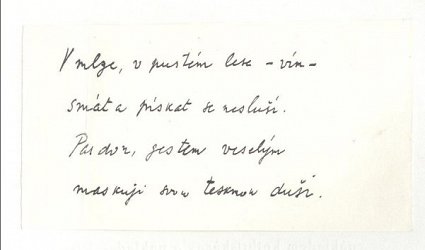 V mlze, v pustém lese – vím –
smát a pískat se nesluší.
Pardon, gestem veselým
maskuji svou tesknou duši.